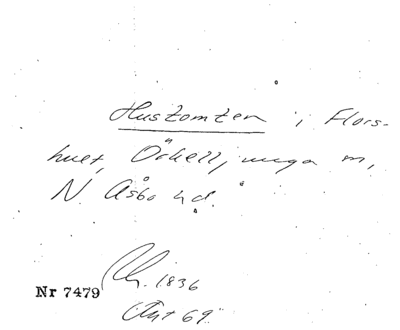 Hustomten i Flors-
huet, Örkelljunga m,
N. Åsbo hd.
1836
Nr 7479
69.